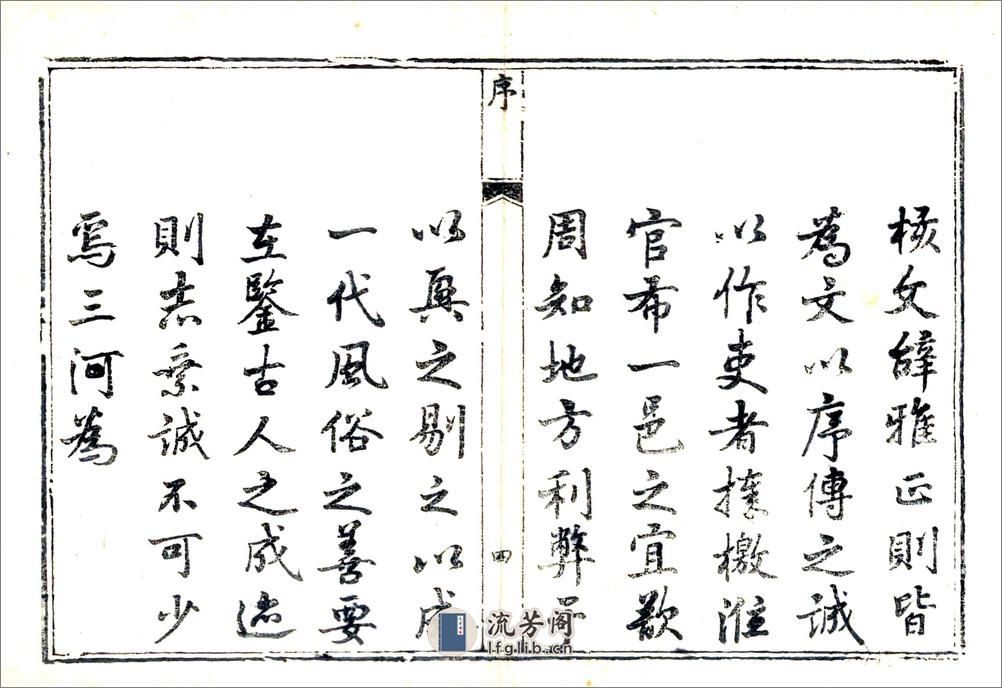 核文辭雅正則皆
為文以序傳之誠
以作吏者捧檄涖
官希一邑之宜欲
周知地方利弊
序
四
以興之剔之以成
一代風俗之善要
在鑒古人之成迹
則志乘誠不可少
焉三河為
流芳阁
lfglib.cn